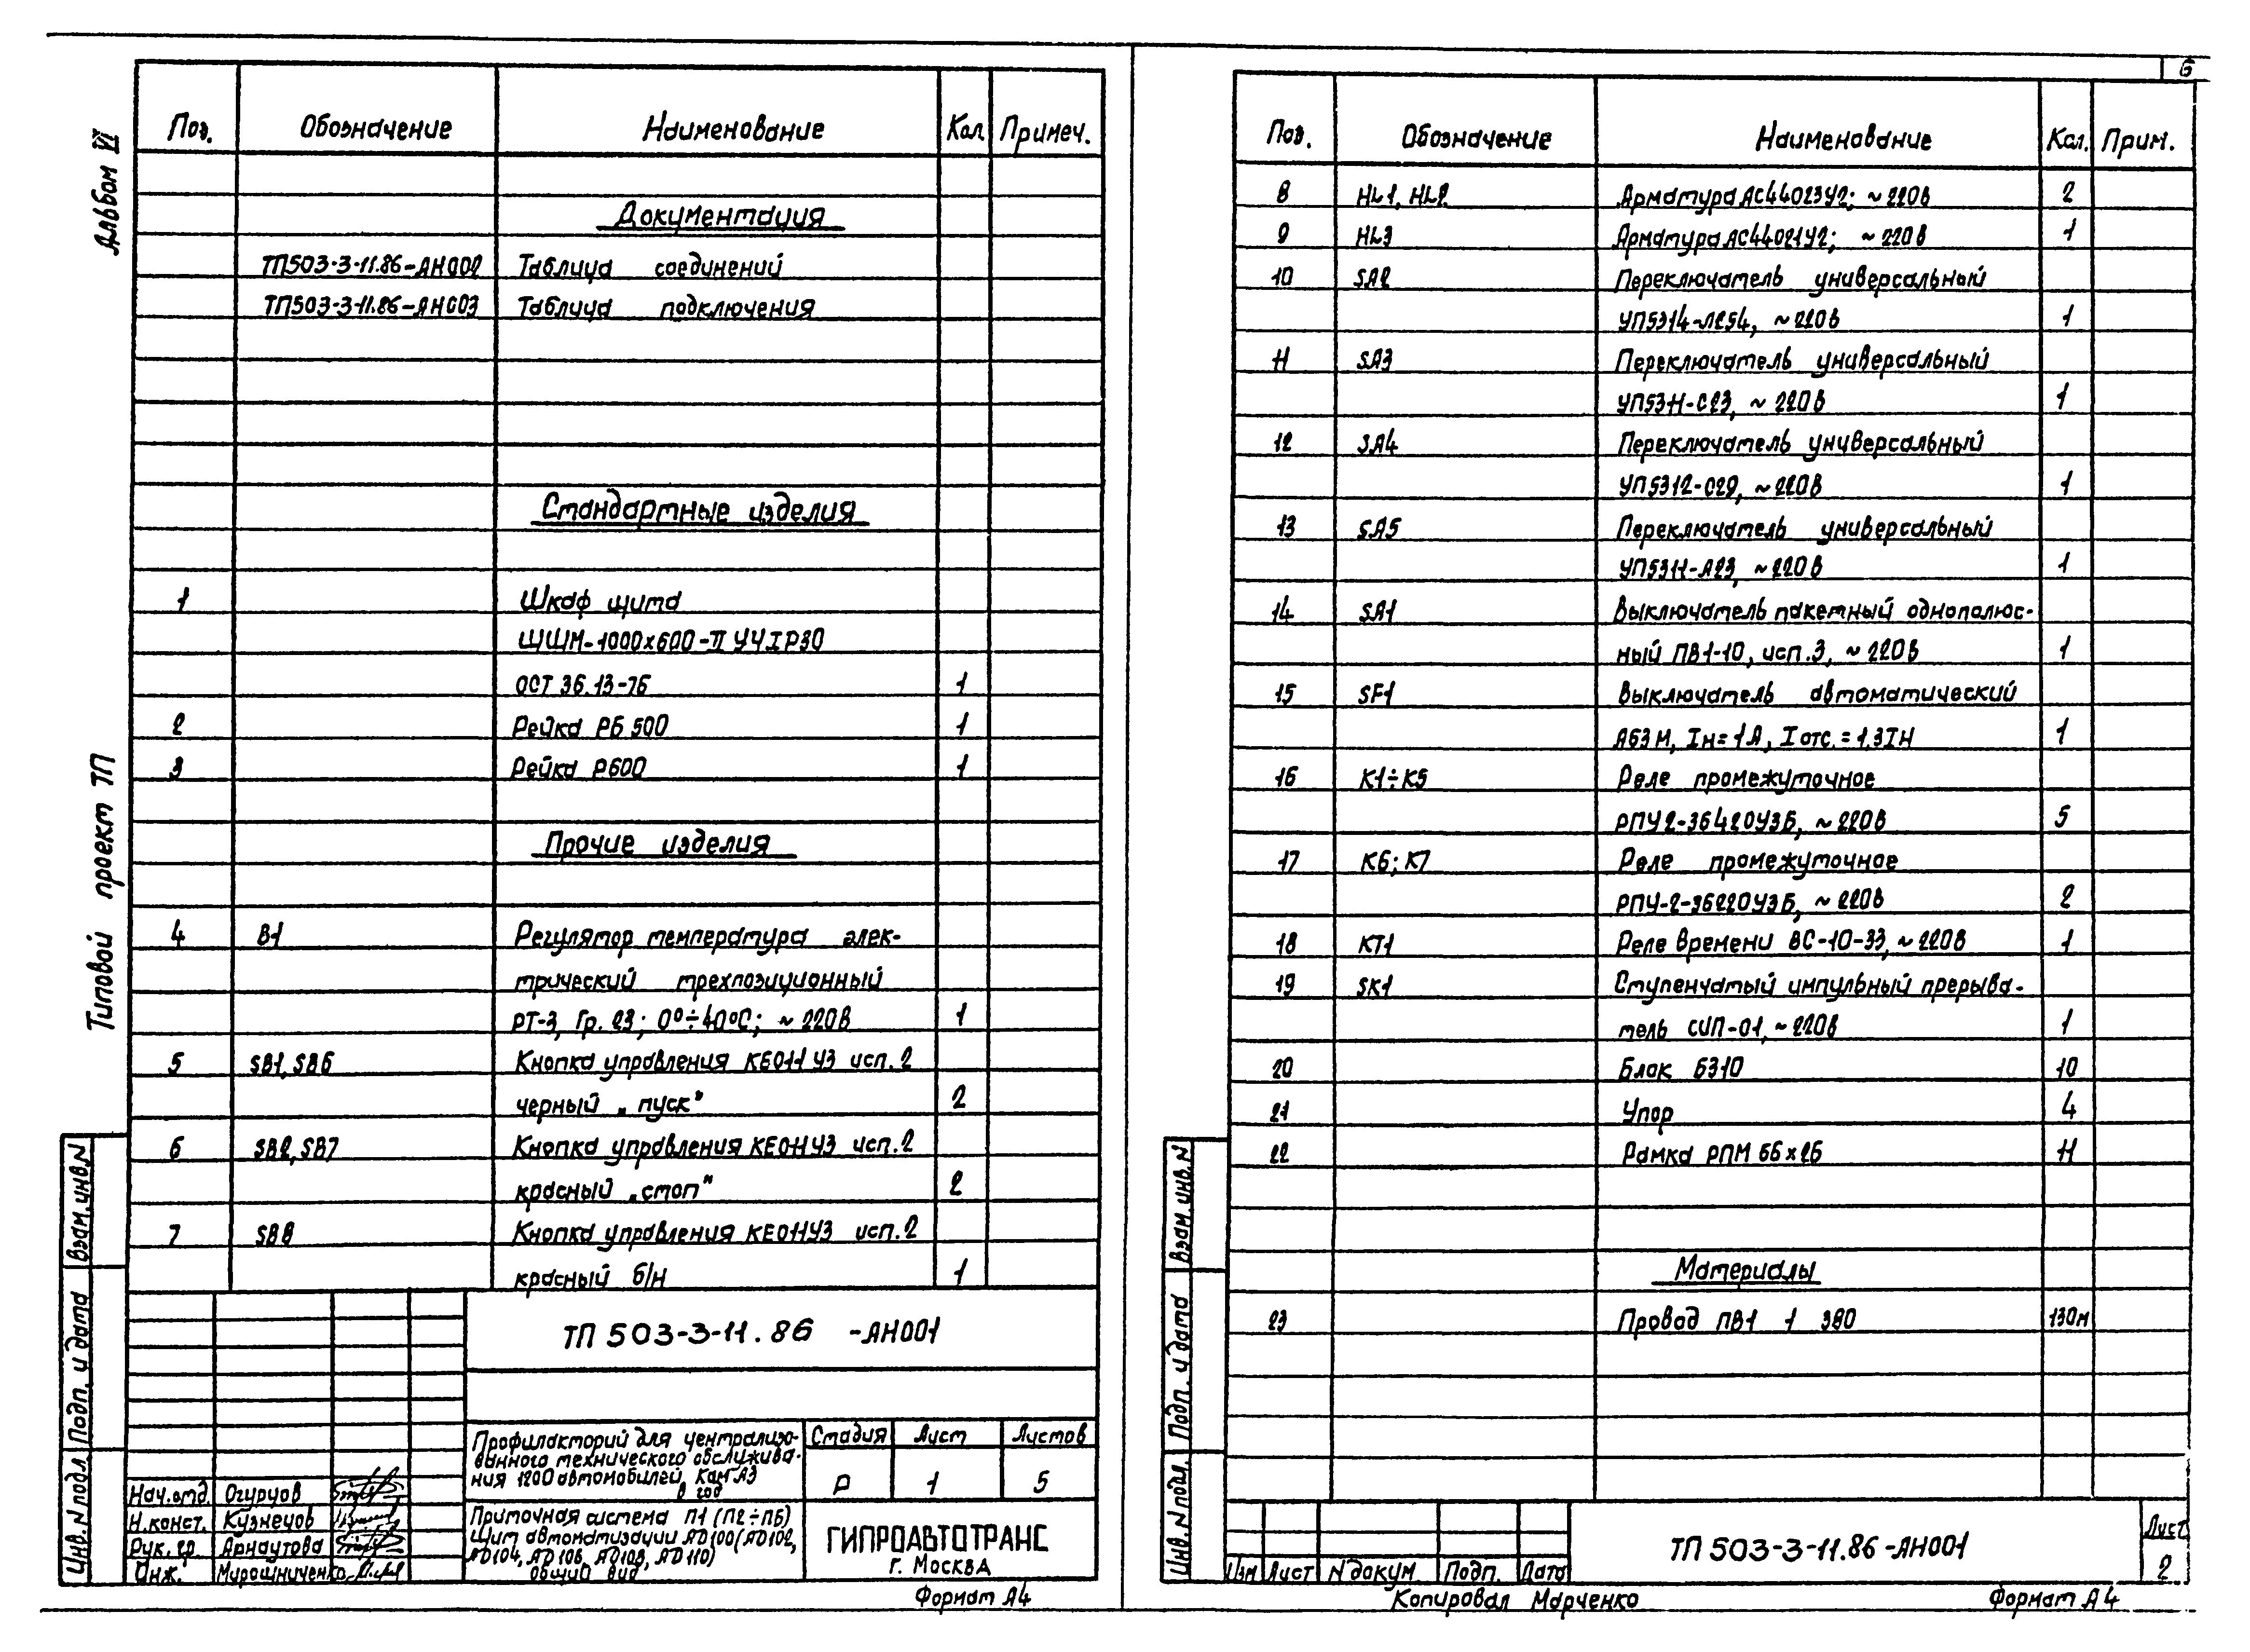 Альбом VI
Типовой проект ТП
Поз. Обозначение Наименование Кол Примеч.
Документация
ТП503-3-11.86-АН002 Таблица соединений
ТП503-3-11.86-АН003 Таблица подключения
Стандартные изделия
1 Шкаф щита
ЩШМ-1000х600-П УЧ IP30
ОСТ 36.13-76 1
2 Рейка РБ 500 1
3 Рейка Р600 1
Прочие изделия
4 В1 Регулятор температура элек-
трический трехпозиционный
РТ-3, Гр. 23; 0°÷40°С; ~220В 1
5 SB1, SB6 Кнопка управления КЕ011 У3 исп. 2
черный „пуск" 2
6 SB2, SB7 Кнопка управления КЕ011У3 исп. 2
красный „стоп" 2
7 SB8 Кнопка управления КЕ011У3 исп. 2
красный б/н 1
ТП 503-3-11.86 -АН001
Профилакторий для централизо-
ванного технического обслужива-
ния 1200 автомобилей КамАЗ
в год
Стадия Лист Листов
Р 1 5
Приточная система П1 (П2÷П6)
Щит автоматизации АD100 (АD102,
АD104, АD106, АD108, АD110)
Общий вид
ГИПРОАВТОТРАНС
г. Москва
Нач.отд. Огурцов
Н.конст. Кузнецов
Рук. гр. Арнаутова
Инж. Мирошниченко
Взам.инв.N
Подп. и дата
Инв.N подл.
Формат А4
6
Поз. Обозначение Наименование Кол. Прим.
8 HL1, HL2 Арматура АС44023У2; ~220В 2
9 HL3 Арматура АС44021У2; ~220В 1
10 SA2 Переключатель универсальный
УП5314-Л254, ~220В 1
11 SA3 Переключатель универсальный
УП5311-С23, ~220В 1
12 SA4 Переключатель универсальный
УП5312-С29, ~220В 1
13 SA5 Переключатель универсальный
УП5311-А23, ~220В 1
14 SA1 Выключатель пакетный однополюс-
ный ПВ1-10, исп.3, ~220В 1
15 SF1 Выключатель автоматический
А63М, Iн=1А, Iотс.=1,3Iн 1
16 К1÷К5 Реле промежуточное
РПУ2-36420У3Б, ~220В 5
17 К6; К7 Реле промежуточное
РПУ-2-36220У3Б, ~220В 2
18 КТ1 Реле времени ВС-10-33, ~220В 1
19 SK1 Ступенчатый импульный прерыва-
тель СИП-01, ~220В 1
20 Блок Б310 10
21 Упор 4
22 Рамка РПМ 66х26 11
Материалы
23 Провод ПВ1 1 380 130м
Взам.инв.N
Подп. и дата
Инв.N подл.
Изм Лист N докум. Подп. Дата
ТП 503-3-11.86-АН001
Лист
2
Копировал Марченко
Формат А4